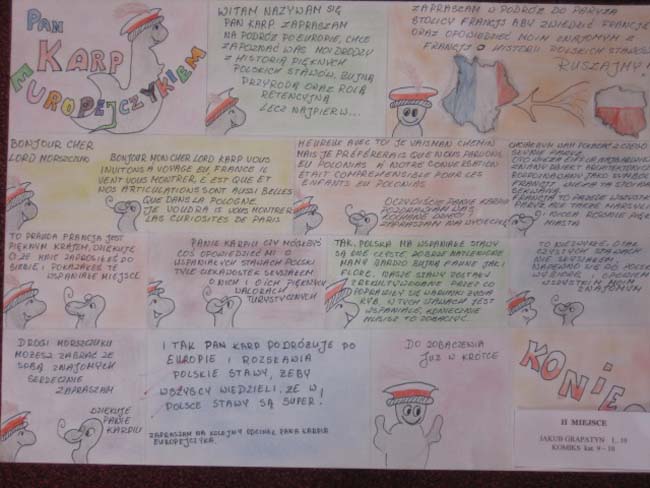 PAN
KARP
EUROPEJCZYKIEM
WITAM NAZYWAM SIĘ
PAN KARP ZAPRASZAM
NA PODRÓŻ PO EUROPIE, CHCE
ZAPOZNAĆ WAS MOI DRODZY
Z HISTORIĄ PIĘKNYCH
POLSKICH STAWÓW, BUJNĄ
PRZYRODĄ ORAZ ROLĄ
RETENCYJNĄ
LECZ NAJPIERW...
ZAPRASZAM W PODRÓŻ DO PARYŻA
STOLICY FRANCJI ABY ZWIEDZIĆ FRANCJĘ
ORAZ OPOWIEDZIEĆ MOIM ZNAJOMYM Z
FRANCJI O HISTORII POLSKICH STAWÓW
RUSZAJMY!
BONJOUR CHER
LORD MORSZCZUKU
BONJOUR MON CHER LORD KARP VOUS
INVITONS A VOYAGE EU, FRANCE IL
VENT VOUS MONTRER, E EST QUE ET
NOS ARTICULATIONS SONT AUSSI BELLES
QUE DANS LA POLOGNE.
JE VOUDRA IS VOUS MONTRER
LAS CURIOSITES DE PARIS
HEUREUX AVEC TOI JE VAIS MAN CHEMIN
MAIS JE PRÉFÉRERAIS QUE NOUS PARLIONS
EU POLONIAS A NOTRE CONVERSATION
ETAIT COMPREHENSIBLE POUR LES
ENFANTS EU POLONIAS
OCZYWIŚCIE PANIE KARPIU
KOCHANE DZIECI
ZAPRASZAM NA WYCIECZKĘ
TO PRAWDA FRANCJA JEST
PIĘKNYM KRAJEM, DZIĘKUJE
CI ŻE MNIE ZAPROSIŁEŚ DO
SIEBIE I POKAZAŁEŚ TE
WSPANIAŁE MIEJSCE
PANIE KARPIU CZY MÓGŁBYŚ
COŚ OPOWIEDZIEĆ MI O
WSPANIAŁYCH STAWACH POLSKI
TYLE CIEKAWOSTEK SŁYSZAŁEM
O NICH I O ICH PIĘKNYCH
WALORACH
TURYSTYCZNYCH
TAK, POLSKA MA WSPANIAŁE STAWY
SĄ ONE CZYSTE DOBRZE NATLENIONE
MAMY BARDZO BUJNĄ FAUNE JAK I
FLORE. NASZE STAWY ZOSTAŁY
ZREKULTYWOWANE PRZEZ CO
POPRAWIŁY SIĘ WARUNKI ŻYCIA
RYB. W TYCH STAWACH JEST
WSPANIALE, KONIECZNIE
MUSISZ TO ZOBACZYĆ.
TO NIEZWYKŁE, O TAK
CZYSTYCH STAWACH
NIE SŁYSZAŁEM
WSZYSTKIM MOIM
ZNAJOMYM
DROGI MORSZCZUKU
MOŻESZ ZABRAĆ ZE
SOBĄ ZNAJOMYCH
SERDECZNIE
ZAPRASZAM
DZIĘKUJE
PANIE
KARPIU
I TAK PAN KARP PODRÓŻUJE PO
EUROPIE I ROZSŁAWIA
POLSKIE STAWY, ŻEBY
WSZYSCY WIEDZIELI, ŻE W
POLSCE STAWY SĄ SUPER!
ZAPRASZAM NA KOLEJNY ODCINEK PANA KARPIA
EUROPEJCZYKA.
DO ZOBACZENIA
JUŻ W KRÓTCE
KONIE
II MIEJSCE
JAKUB GRAPATYN L. 10
KOMIKS kat 9-10